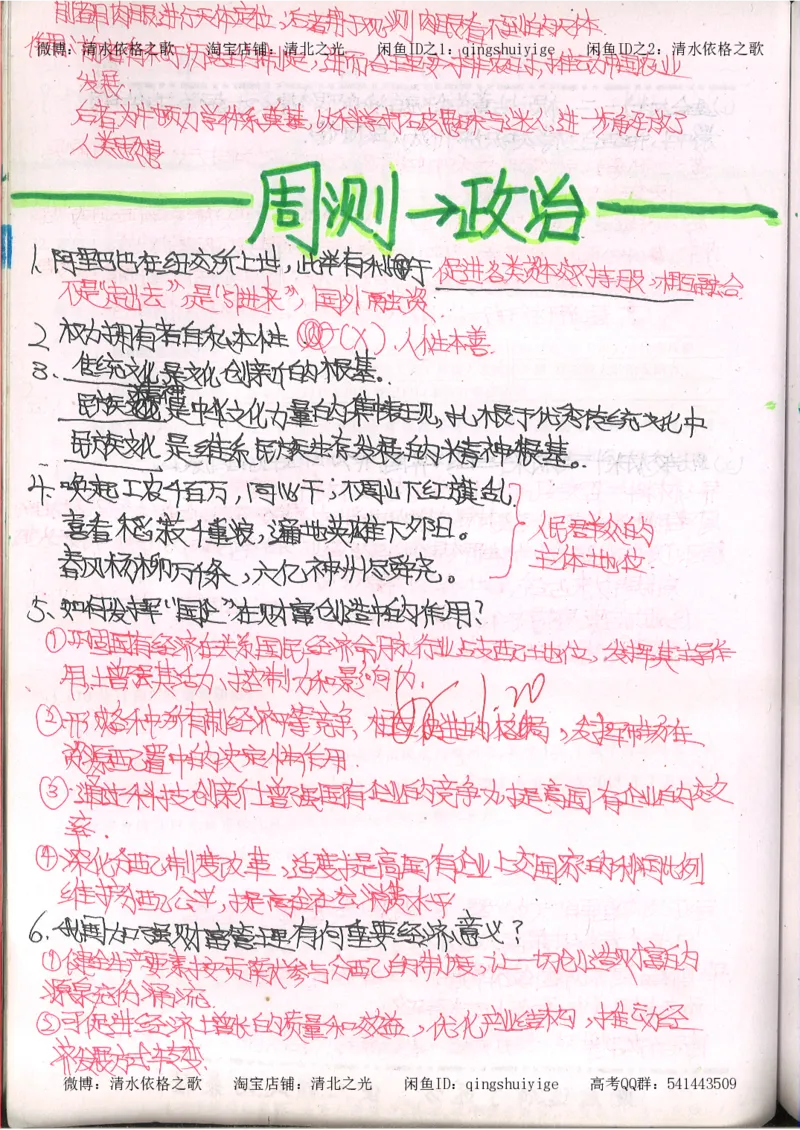 前者用肉眼进行天体定位,后者用于观测肉眼看不到的天体.
微博：清水依格之歌 淘宝店铺：清北之光 闲鱼ID之1：qingshuiyige 闲鱼ID之2：清水依格之歌
作用:前者有利于历法的制定,进而合理安排农业,推动中国农业
发展
后者为牛顿力学体系奠基,以科学打破愚昧与迷人,进一步解放了
人类思想
周测→政治
1. 阿里巴巴在纽交所上世,此举有利于促进各类资本交叉持股,相互融合
不是"走出去",是"引进来",国外融资
2. 权力拥有者自私本性 (×).人性本善.
3. 传统文化是文化创新的根基。
民族精神是中华文化力量的集中表现,扎根于优秀传统文化中
民族文化是维系民族生存发展的精神根基。
4. 唤起工农千百万,同心干;不周山下红旗乱,
喜看稻菽千重浪,遍地英雄下夕烟。
人民群众的
主体地位.
春风杨柳万千条,六亿神州尽舜尧。
5. 如何发挥"国企"在财富创造中的作用?
①巩固国有经济在关系国民经济命脉行业占支配地位,发挥其主导作
用,增强其活力,控制力和影响力.
1.20
②形成各种所有制经济平等竞争,相互促进的格局,发挥市场在
资源配置中的决定性作用.
③通过科技创新,增强国有企业的竞争力,提高国有企业的效
率.
④深化分配制度改革,适度提高国有企业上交国家的利润比例
维护分配公平,提高全社会消费水平
6. 我国加强财富管理有何重要经济意义?
①健全生产要素按贡献参与分配的制度,让一切创造财富的
源泉充分涌流.
②可促进经济增长的质量和效益,优化产业结构,推动经
济发展方式转变.
微博：清水依格之歌 淘宝店铺：清北之光 闲鱼ID：qingshuiyige 高考QQ群：541443509